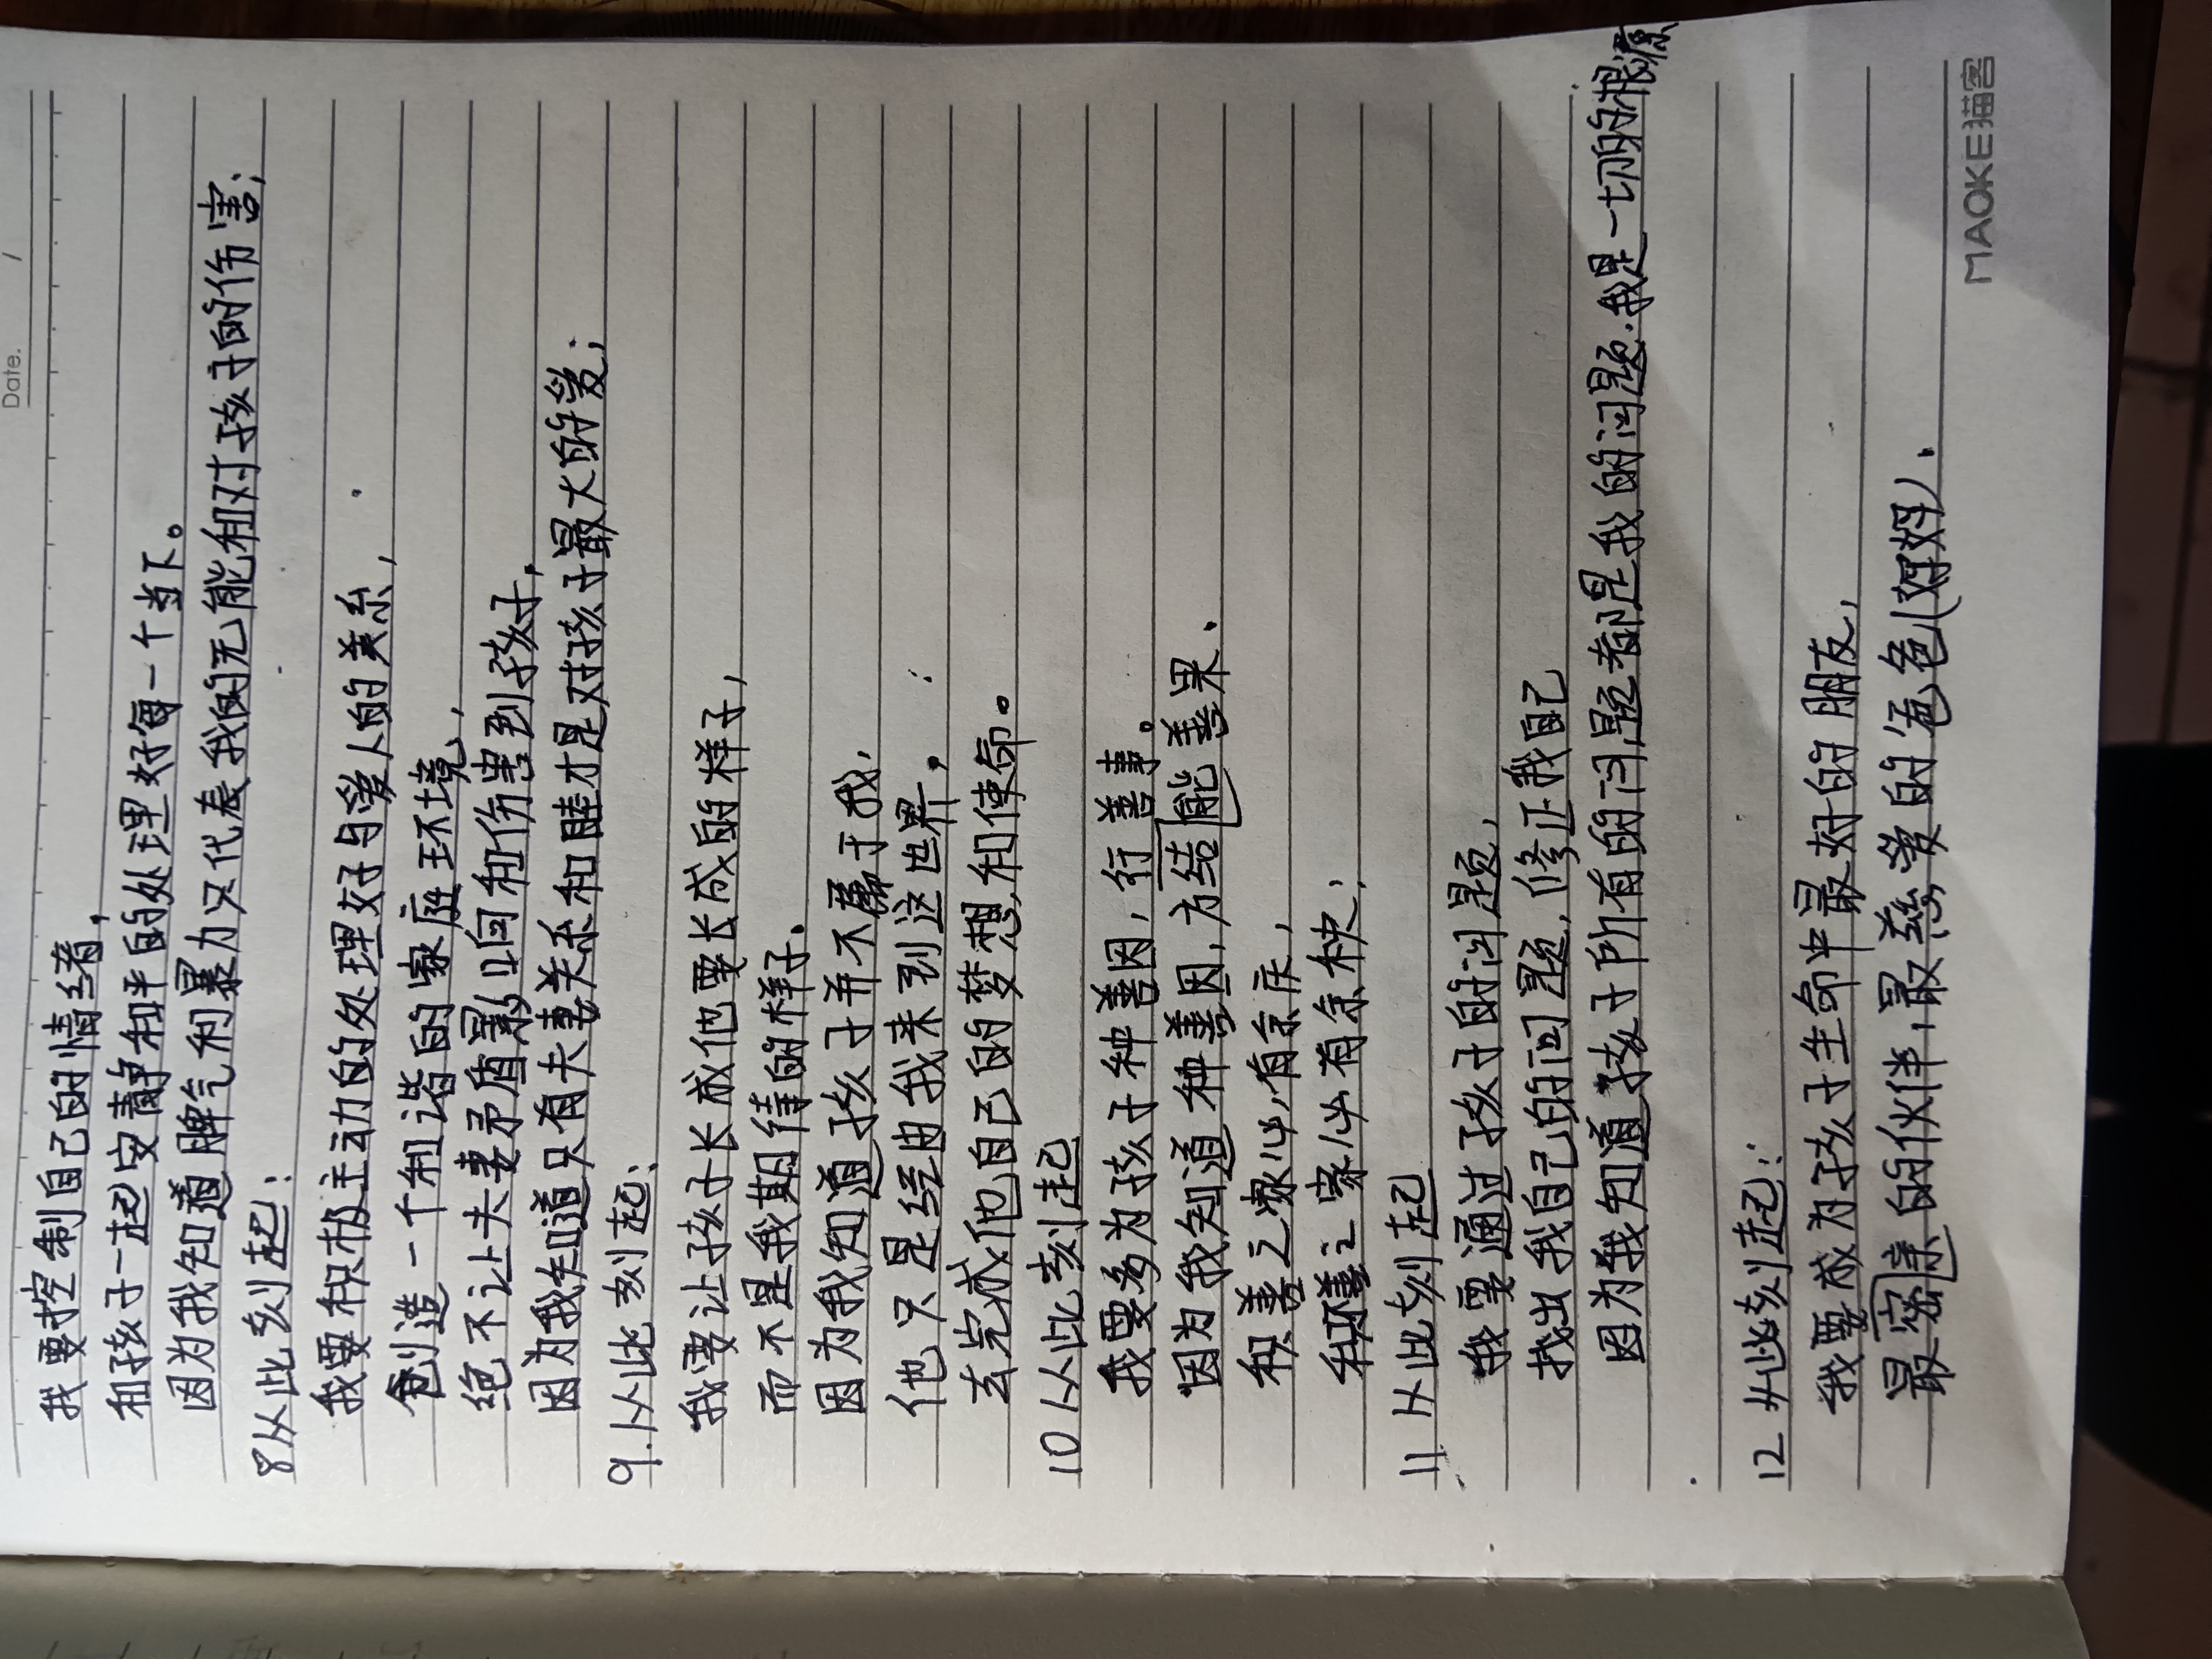 Date. /
我要控制自己的情绪，
和孩子一起安静和平的处理好每一个当下。
因为我知道脾气和暴力只代表我的无能和对孩子的伤害；
8从此刻起：
我要积极主动的处理好与爱人的关系，
创造一个和谐的家庭环境，
绝不让夫妻矛盾影响和伤害到孩子，
因为我知道只有夫妻关系和睦才是对孩子最大的爱；
9.从此刻起：
我要让孩子长成他要长成的样子，
而不是我期待的样子.
因为我知道孩子并不属于我，
他只是经由我来到这世界，
去完成他自己的梦想和使命。
10从此刻起
我要多为孩子种善因，行善事。
因为我知道种善因，方结能善果.
积善之家必有余庆，
积不善之家必有余秧；
11从此刻起
我要通过孩子的问题，
找出我自己的问题，修正我自己
因为我知道孩子所有的问题都是我的问题.我是一切的根源
12从此刻起：
我要成为孩子生命中最好的朋友，
最密亲的伙伴，最慈爱的爸爸（妈妈）.
MAOKE猫客